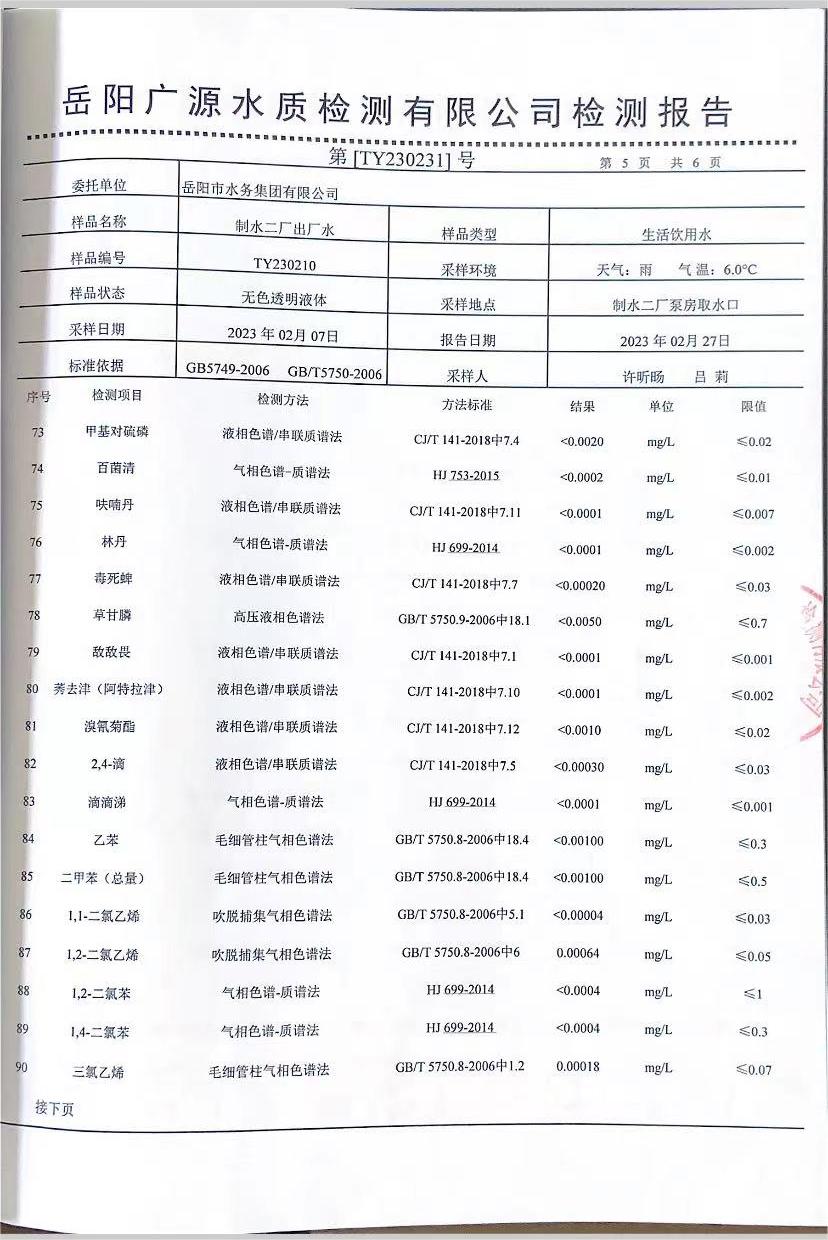 岳阳广源水质检测有限公司检测报告
第 [TY230231] 号 第 5 页 共 6 页
委托单位 岳阳市水务集团有限公司
样品名称 制水二厂出厂水 样品类型 生活饮用水
样品编号 TY230210 采样环境 天气：雨 气温：6.0°C
样品状态 无色透明液体 采样地点 制水二厂泵房取水口
采样日期 2023 年 02月 07日 报告日期 2023 年 02月 27日
标准依据 GB5749-2006 GB/T5750-2006 采样人 许昕旸 吕 莉
序号 检测项目 检测方法 方法标准 结果 单位 限值
73 甲基对硫磷 液相色谱/串联质谱法 CJ/T 141-2018中7.4 <0.0020 mg/L ≤0.02
74 百菌清 气相色谱-质谱法 HJ 753-2015 <0.0002 mg/L ≤0.01
75 呋喃丹 液相色谱/串联质谱法 CJ/T 141-2018中7.11 <0.0001 mg/L ≤0.007
76 林丹 气相色谱-质谱法 HJ 699-2014 <0.0001 mg/L ≤0.002
77 毒死蜱 液相色谱/串联质谱法 CJ/T 141-2018中7.7 <0.00020 mg/L ≤0.03
78 草甘膦 高压液相色谱法 GB/T 5750.9-2006中18.1 <0.0050 mg/L ≤0.7
79 敌敌畏 液相色谱/串联质谱法 CJ/T 141-2018中7.1 <0.0001 mg/L ≤0.001
80 莠去津（阿特拉津） 液相色谱/串联质谱法 CJ/T 141-2018中7.10 <0.0001 mg/L ≤0.002
81 溴氰菊酯 液相色谱/串联质谱法 CJ/T 141-2018中7.12 <0.0010 mg/L ≤0.02
82 2,4-滴 液相色谱/串联质谱法 CJ/T 141-2018中7.5 <0.00030 mg/L ≤0.03
83 滴滴涕 气相色谱-质谱法 HJ 699-2014 <0.0001 mg/L ≤0.001
84 乙苯 毛细管柱气相色谱法 GB/T 5750.8-2006中18.4 <0.00100 mg/L ≤0.3
85 二甲苯（总量） 毛细管柱气相色谱法 GB/T 5750.8-2006中18.4 <0.00100 mg/L ≤0.5
86 1,1-二氯乙烯 吹脱捕集气相色谱法 GB/T 5750.8-2006中5.1 <0.00004 mg/L ≤0.03
87 1,2-二氯乙烯 吹脱捕集气相色谱法 GB/T 5750.8-2006中6 0.00064 mg/L ≤0.05
88 1,2-二氯苯 气相色谱-质谱法 HJ 699-2014 <0.0004 mg/L ≤1
89 1,4-二氯苯 气相色谱-质谱法 HJ 699-2014 <0.0004 mg/L ≤0.3
90 三氯乙烯 毛细管柱气相色谱法 GB/T 5750.8-2006中1.2 0.00018 mg/L ≤0.07
接下页